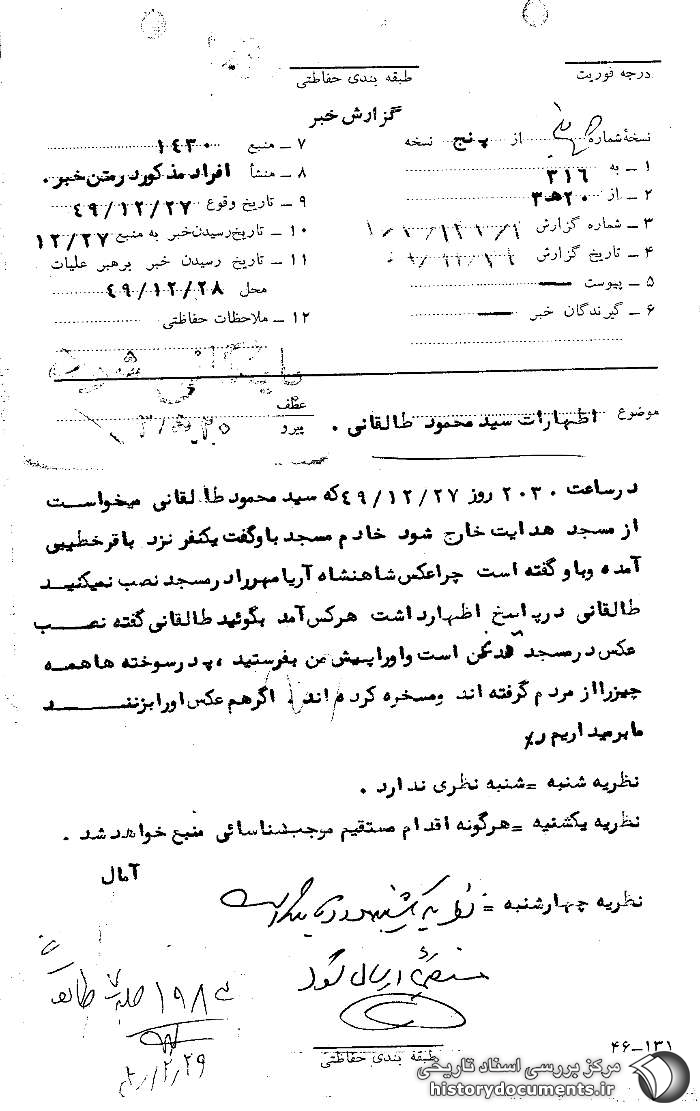 درجه فوریت
طبقه بندی حفاظتی
گزارش خبر
نسخهٔ شماره از پنج نسخه
۱ ـ به ۳۱۶
۲ ـ از ۲۰هـ۳
۳ ـ شماره گزارش
۴ ـ تاریخ گزارش
۵ ـ پیوست ــ
۶ ـ گیرندگان خبر ــ
۷ ـ منبع ۱۴۳۰
۸ ـ منشأ افراد مذکور در متن خبر .
۹ ـ تاریخ وقوع ۴۹/۱۲/۲۷
۱۰ ـ تاریخ رسیدن خبر به منبع ۱۲/۲۷
۱۱ ـ تاریخ رسیدن خبر برهبر علمیات
محل ۴۹/۱۲/۲۸
۱۲ ـ ملاحظات حفاظتی
بایگانی شود
موضوع اظهارات سید محمود طالقانی .
عطف
پیرو
درساعت ۲۰۳۰ روز ۴۹/۱۲/۲۷ که سید محمود طالقانی میخواست
از مسجد هدایت خارج شود خادم مسجد باو گفت یکنفر نزد باقر خطیبی
آمده و باو گفته است چرا عکس شاهنشاه آریامهر را در مسجد نصب نمیکنید
طالقانی در پاسخ اظهار داشت هر کس آمد بگوئید طالقانی گفته نصب
عکس در مسجد است و او را پیش من بفرستید ، پدر سوخته ها همه
چیز را از مردم گرفته اند و مسخره کرده اند . اگر هم عکس او را بزنند
ما بر میداریم ر٪
نظریه شنبه = شنبه نظری ندارد .
نظریه یکشنبه = هرگونه اقدام مستقیم موجب شناسائی منبع خواهد شد .
آمال
نظریه چهارشنبه = نظریه یکشنبه مورد تایید است
ارسال گردد
۱۹۸۲
۲/۲۹
۴۶ـ۱۳۱
طبقه بندی حفاظتی
مرکز بررسی اسناد تاریخی
historydocuments.ir